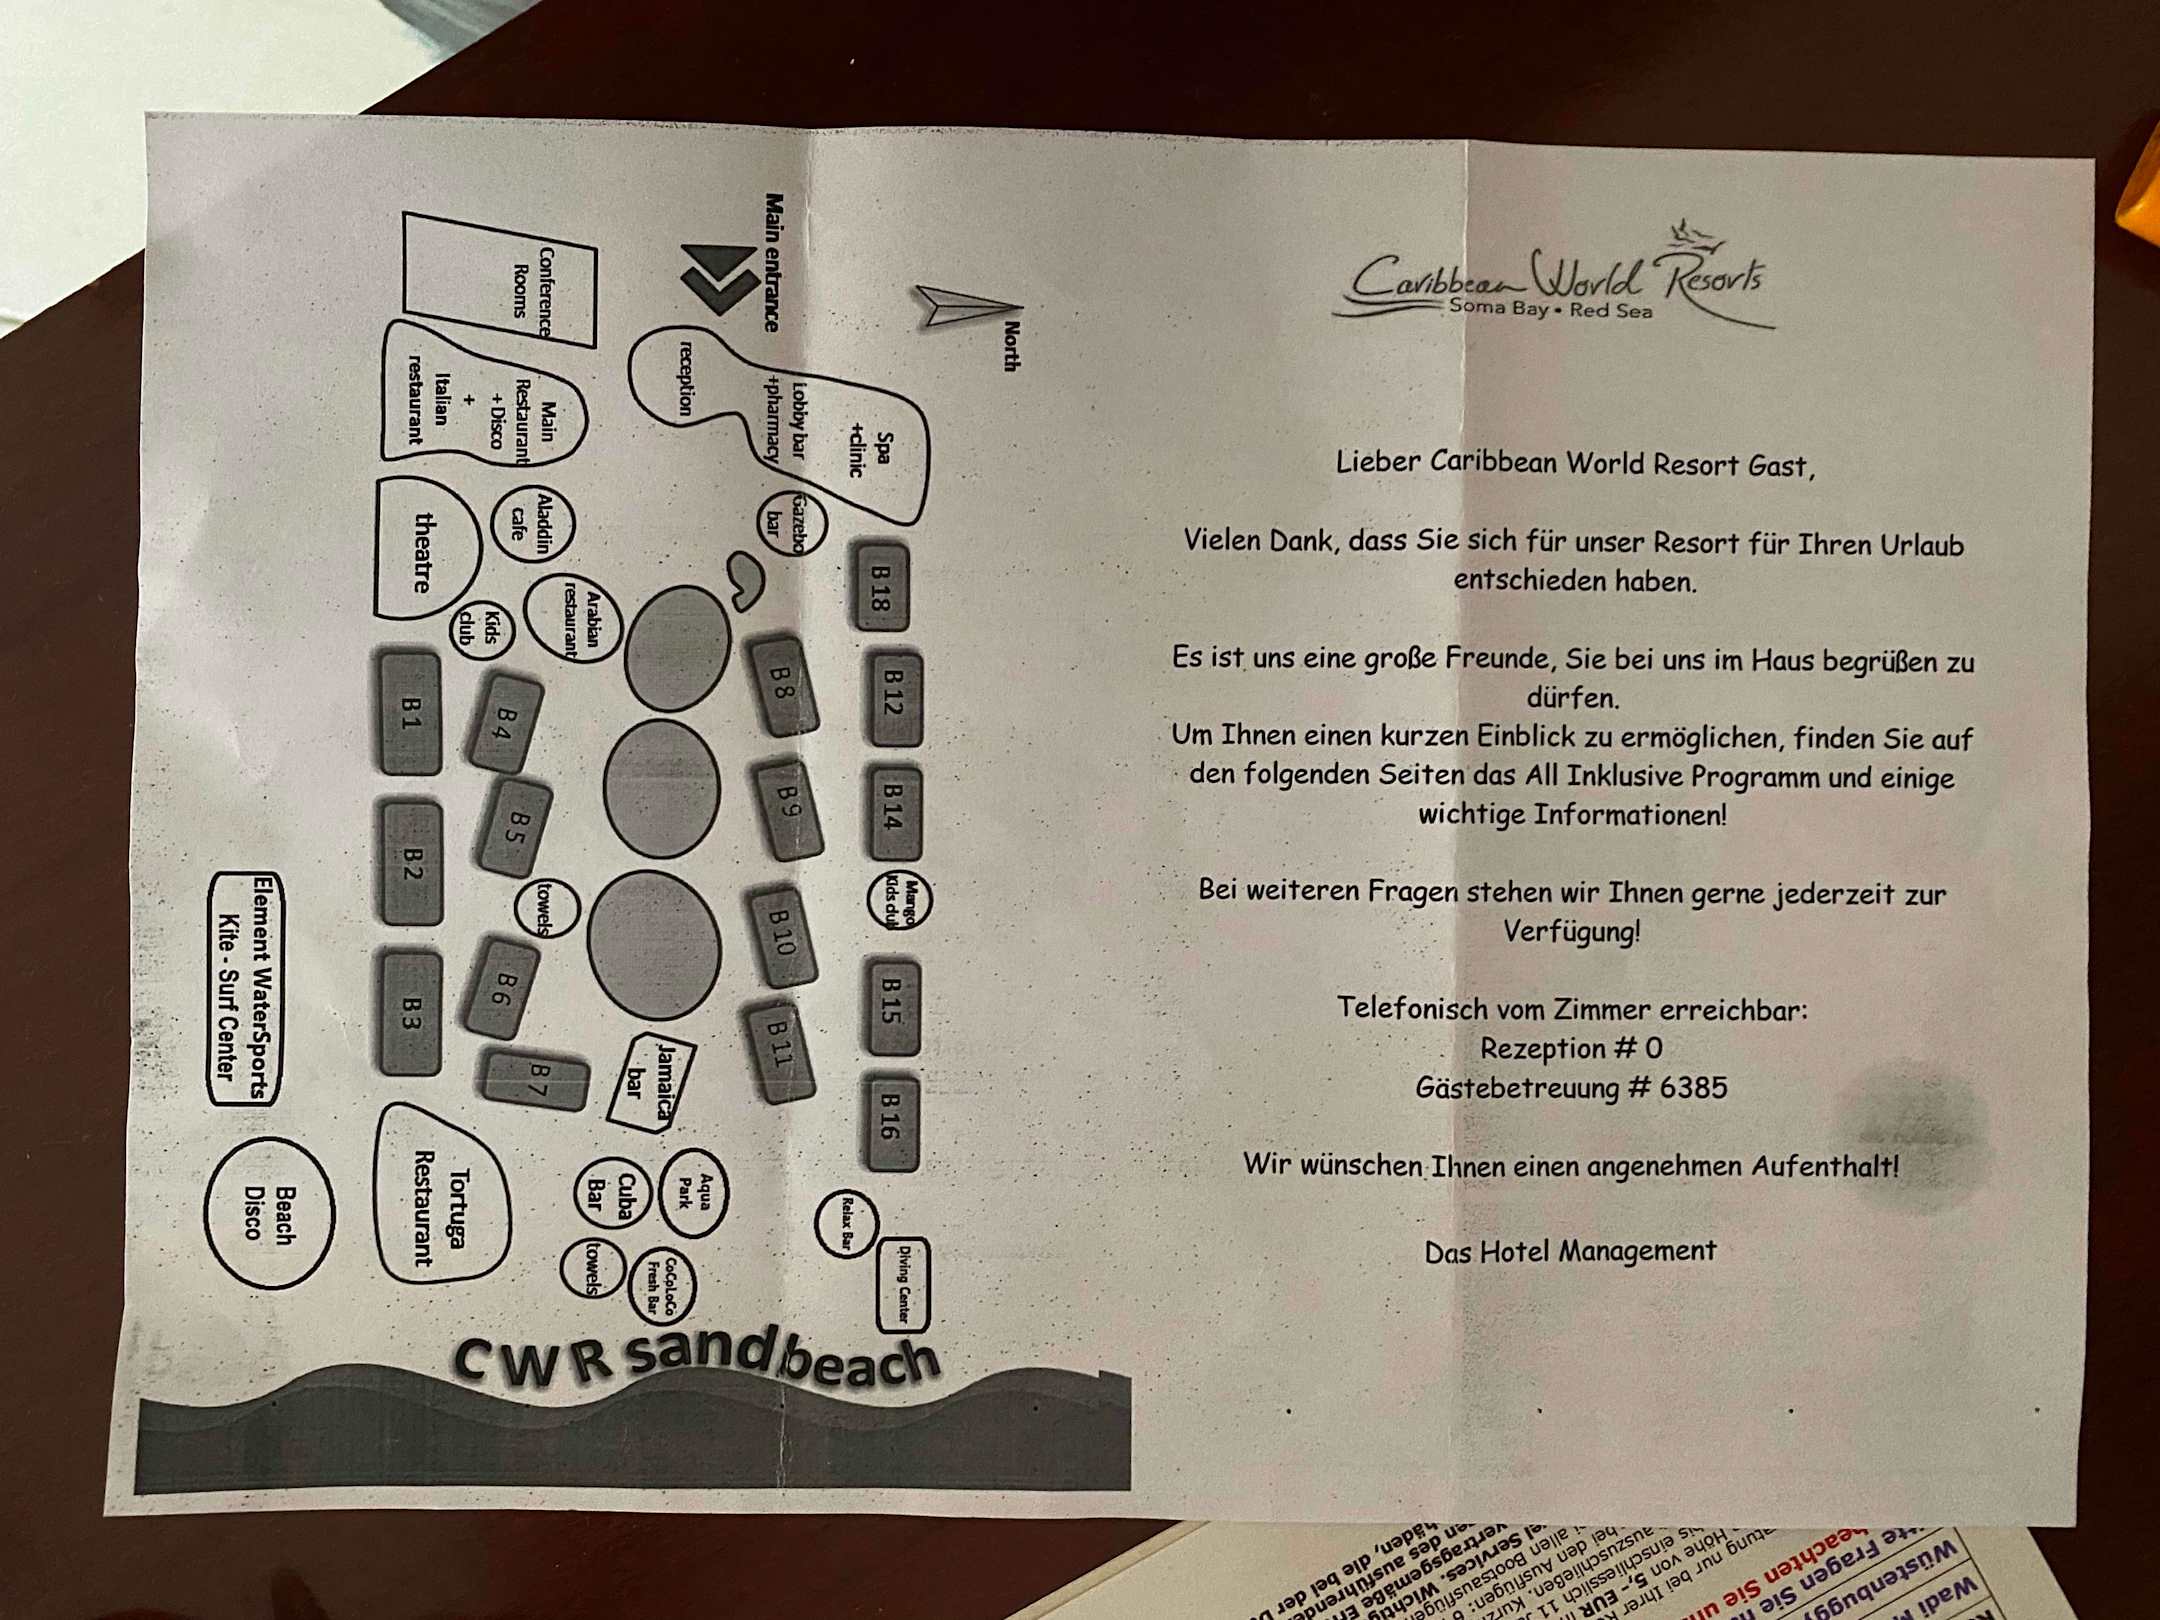 Main entrance
North
Conference
Rooms
reception
Lobby bar
+pharmacy
Spa
+clinic
Main
Restaurant
+ Disco
+
Italian
restaurant
theatre
Aladdin
cafe
Gazebo
bar
Arabian
restaurant
Kids
club
B 18
B 8
B 12
B 1
B 4
B 9
B 14
B 5
B 2
towels
Mango
Kids club
B 10
B 15
B 6
B 3
B 11
B 16
B 7
Jamaica
bar
Element WaterSports
Kite - Surf Center
Beach
Disco
Tortuga
Restaurant
Cuba
Bar
Aqua
Park
towels
CoCoLoCo
Fresh Bar
Relax Bar
Diving Center
CWR sand beach
Caribbean World Resorts
Soma Bay • Red Sea
Lieber Caribbean World Resort Gast,
Vielen Dank, dass Sie sich für unser Resort für Ihren Urlaub
entschieden haben.
Es ist uns eine große Freunde, Sie bei uns im Haus begrüßen zu
dürfen.
Um Ihnen einen kurzen Einblick zu ermöglichen, finden Sie auf
den folgenden Seiten das All Inklusive Programm und einige
wichtige Informationen!
Bei weiteren Fragen stehen wir Ihnen gerne jederzeit zur
Verfügung!
Telefonisch vom Zimmer erreichbar:
Rezeption # 0
Gästebetreuung # 6385
Wir wünschen Ihnen einen angenehmen Aufenthalt!
Das Hotel Management
Wadi
Wüstenbuggy
Fragen Sie
beachten Sie